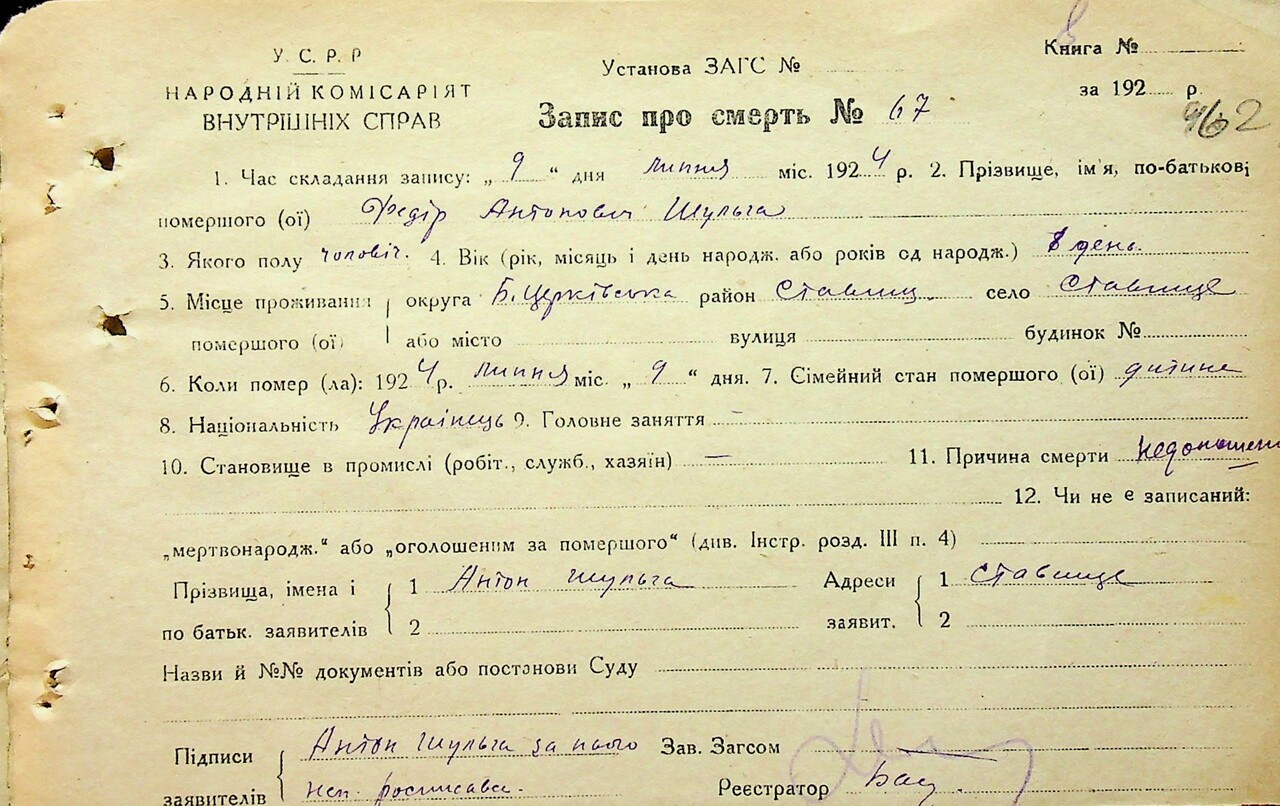 У.С.Р.Р
НАРОДНІЙ КОМІСАРІЯТ
ВНУТРІШНІХ СПРАВ
Установа ЗАГС №
Книга №
за 192 р.
462
Запис про смерть № 67
1. Час складання запису: „ 9 “ дня липня міс. 1924 р. 2. Прізвище, ім'я, по-батькові
помершого (ої) Федір Антонович Шульга
3. Якого полу чоловіч. 4. Вік (рік, місяць і день народж. або років од народж.) день.
5. Місце проживання округа Б. Церківська район Ставищ. село Ставище
помершого (ої) або місто вулиця будинок №
6. Коли помер (ла): 1924 р. липня міс. „ 9 “ дня. 7. Сімейний стан помершого (ої) дитина
8. Національність Українець 9. Головне заняття —
10. Становище в промислі (робіт., служб., хазяїн) — 11. Причина смерти
12. Чи не є записаний:
„мертвонародж.“ або „оголошеним за помершого“ (див. Інстр. розд. III п. 4)
Прізвища, імена і 1 Антон Шульга Адреси 1 Ставище
по батьк. заявителів 2 заявит. 2
Назви й №№ документів або постанови Суду
Підписи Антон Шульга за нього Зав. Загсом
заявителів Реєстратор